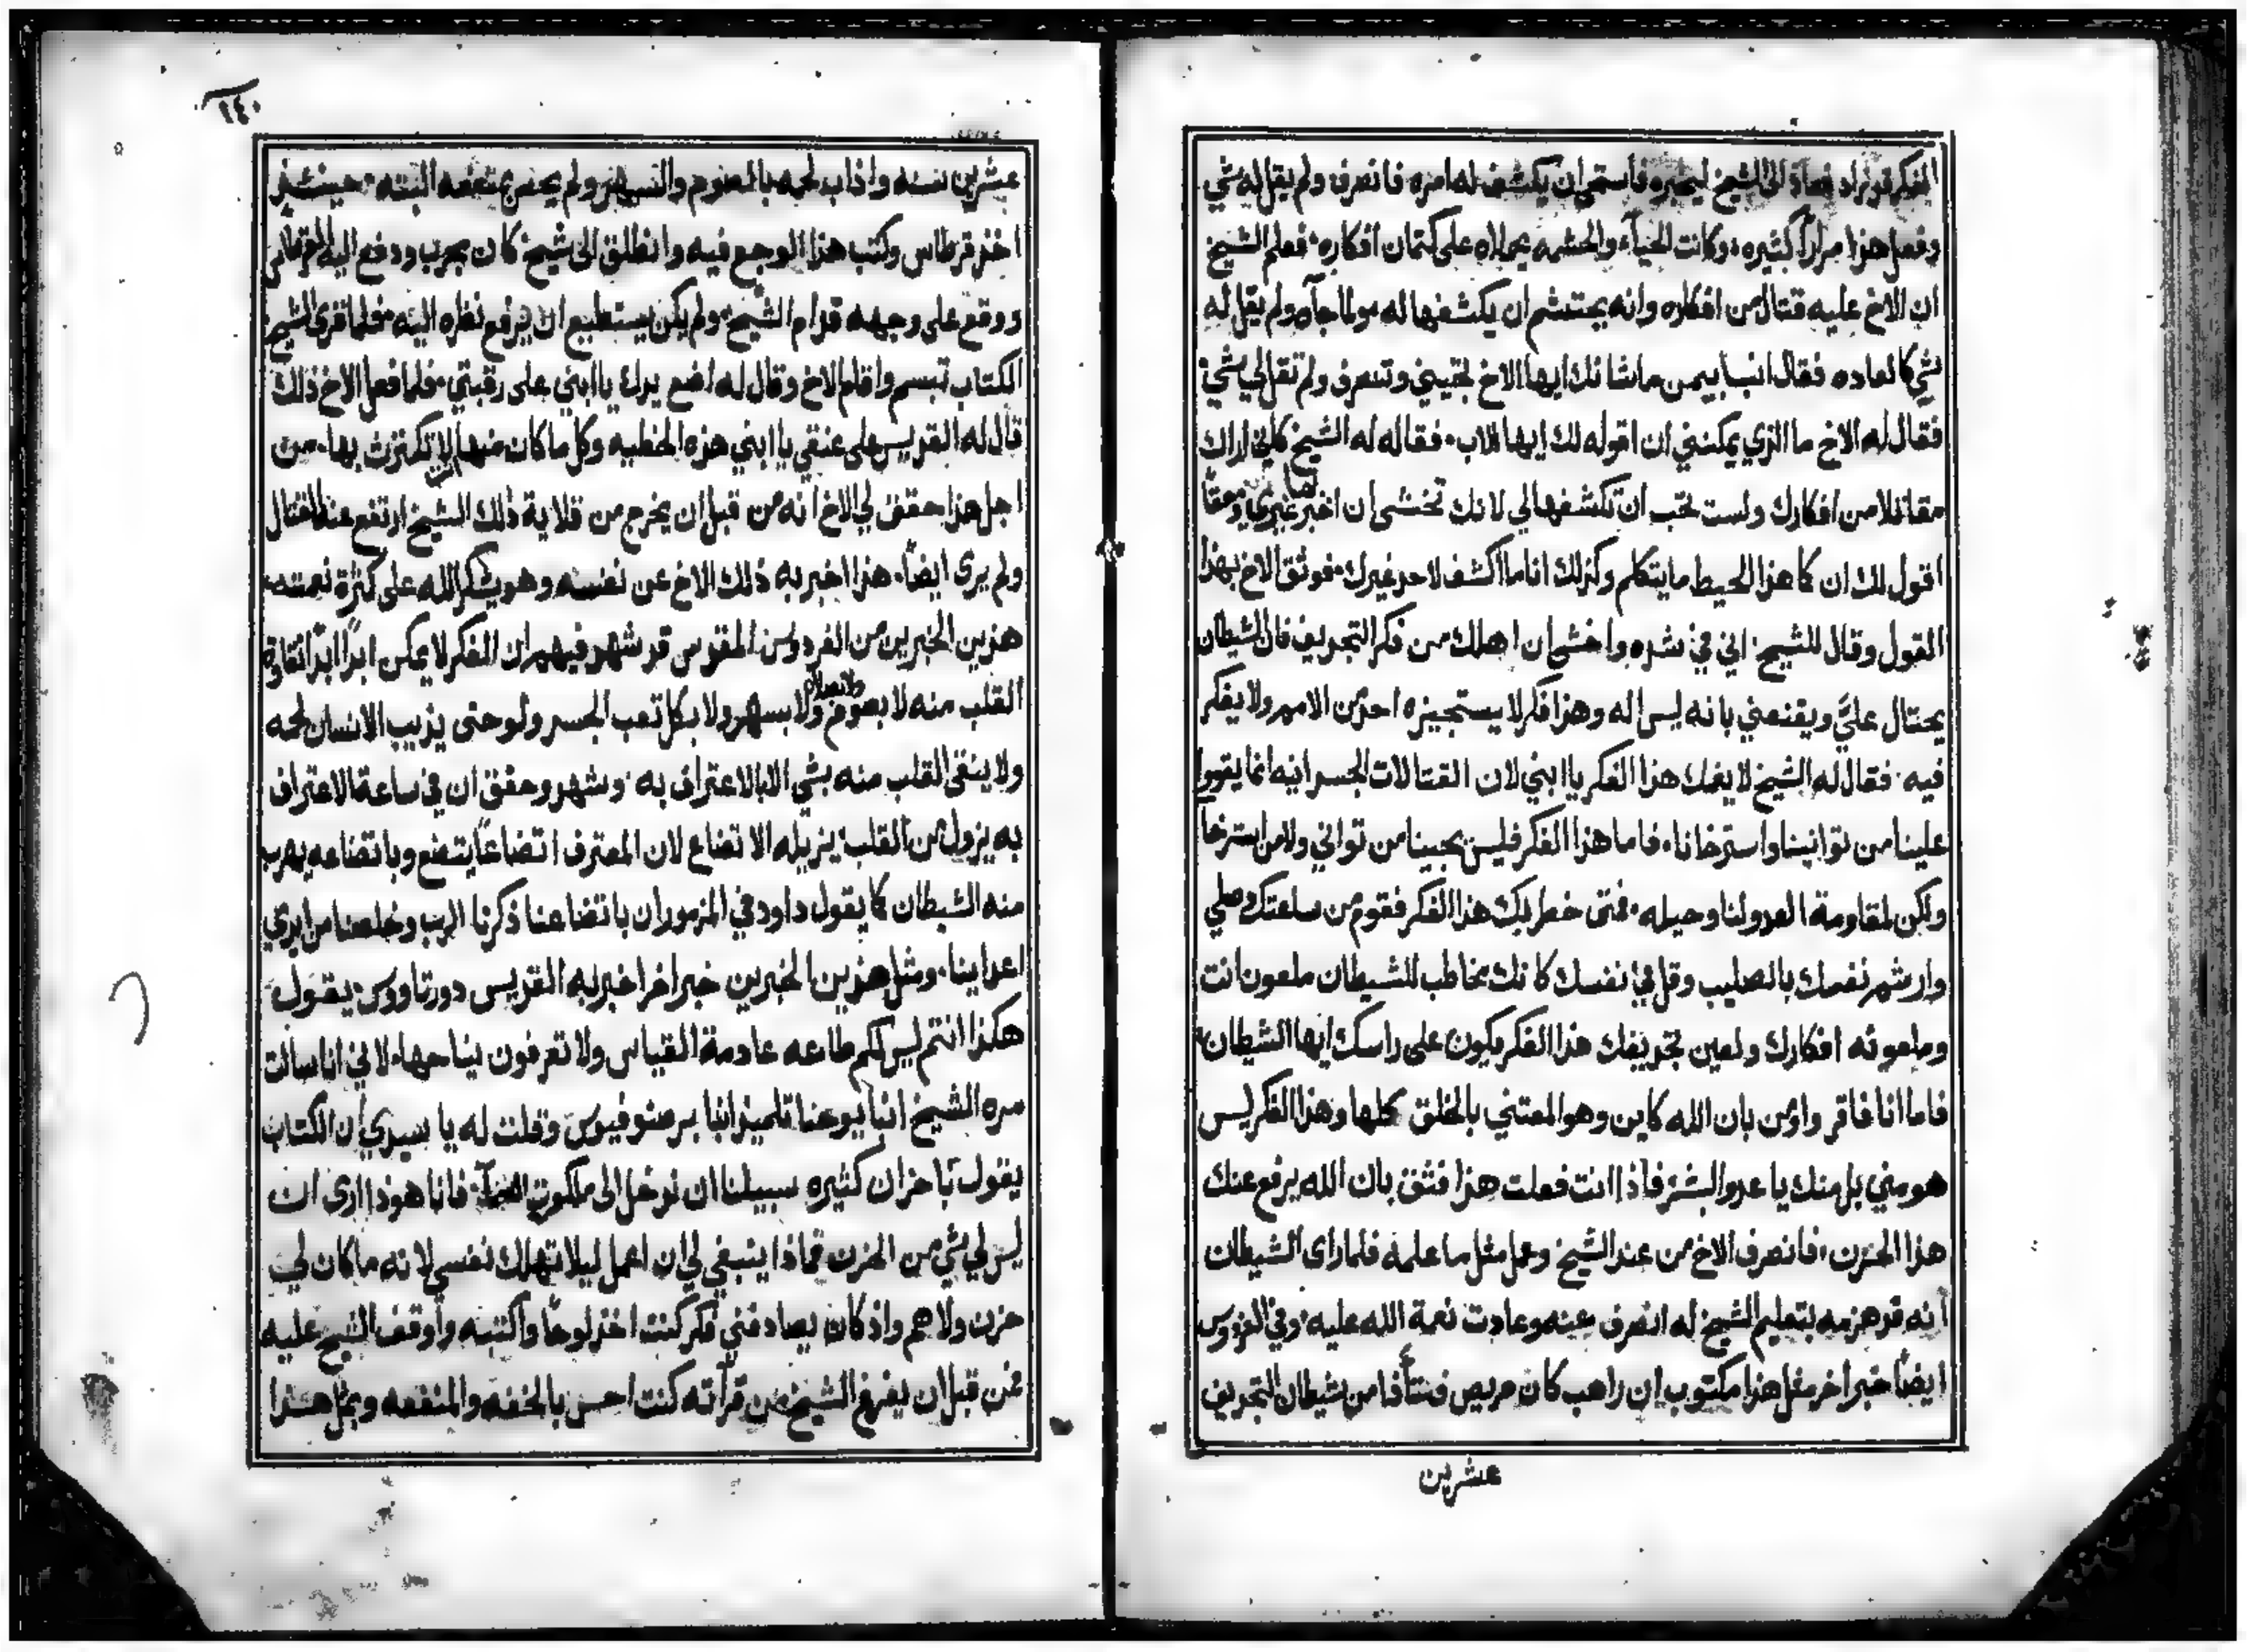 الفكر قد زاد فعاد الى الشيخ ليخبره فاستحى ان يكشف له امره فانصرف ولم يقل له شي
وفعل هذا مراراً كثيره وكانت الحيآء والحشمه يحملاه على كتمان افكاره فعلم الشيخ
ان الاخ عليه قتال من افكاره وانه يحتشم ان يكشفها له ولما جآه ولم يقل له
شي كالعاده فقال انبا بيمن ماشانك ايها الاخ تجيني وتنصرف ولم تقل لي شي
فقال له الاخ ما الذي يمكنني ان اقوله لك ايها الاب فقال له الشيخ كاني اراك
مقاتلا من افكارك ولست تحب ان تكشفها لي لانك تخشى ان اخبر بها غيري وحقاً
اقول لك ان كما هذا الحيط ما يتكلم وكذلك انا ما اكشف لاحد غيرك فوثق الاخ بهذا
القول وقال للشيخ اني في شده واخشى ان اهلك من فكر التجديف فان الشيطان
يحتال عليَّ ويقنعني بانه ليس اله وهذا فكر لا يستجيزه احد من الامم ولا يفكر
فيه فقال له الشيخ لا يغمك هذا الفكر يا ابني لان القتالات الجسدانيه انما يقوون
علينا من توانينا واسترخانا فاما هذا الفكر فليس يجينا من تواني ولا من استرخا
ولكن لمقاومة العدو لنا وحيله فمتى خطر بك هذا الفكر فقوم من ساعتك وصلي
وارشم نفسك بالصليب وقل في نفسك كانك تخاطب للشيطان ملعون انت
وملعونه افكارك ولعين تجديفك هذا الفكر يكون على راسك ايها الشيطان
فاما انا فاقر واومن بان الله كاين وهو المعتني بالخلق كلها وهذا الفكر ليس
هو مني بل منك يا عدو البشر فاذا انت فعلت هذا فثق بان الله يرفع عنك
هذا الحزن فانصرف الاخ من عند الشيخ وعمل مثل ما علمه فلما راى الشيطان
انه قد هزمه بتعليم الشيخ له انصرف عنه وعادت نعمة الله عليه وفي الفردوس
ايضاً خبر اخر مثل هذا مكتوب ان راهب كان حريص من شيطان التجديف
عشرين
١٤٠
عشرين سنه واذاب لحمه بالصوم والسهر ولم يحس بمنفعه البته حينئذ
اخذ قرطاس وكتب هذا الوجع فيه وانطلق الى شيخ كان مجرب ودفع اليه القرطاس
ووقع على وجهه قدام الشيخ ولم يكن يستطيع ان يرفع نظره اليه فلما قرى الشيخ
الكتاب تبسم واقام الاخ وقال له اضع يدك يا ابني على رقبتي فلما فعل الاخ ذلك
قال له القديس على عنقي يا ابني هذه الخطيه وكل ما كان منها لا تكترث بها من
اجل هذا حقق لي الاخ انه من قبل ان يخرج من قلاية ذلك الشيخ ارتفع عنه القتال
ولم يرى ايضاً هذا اخبر به ذلك الاخ عن نفسه وهو يشكر الله على كثرة نعمته
هذين الخبرين من الفردوس المقدس قد شهد فيهم ان الفكر لا يمكن ابداً ابداً نقاوة
القلب منه لا بصوم ولا بصلاه ولا بسهر ولا بكل تعب الجسد ولو حتى يذيب الانسان لحمه
ولا ينقى القلب منه بشي الا بالاعتراف به وشهد وحقق ان في ساعة الاعتراف
به يزول من القلب يزيله الاتضاع لان المعترف اتضاعاً يتضع وباتضاعه يهرب
منه الشيطان كما يقول داود في المزمور ان باتضاعنا ذكرنا الرب وخلصنا من ايدي
اعداينا ومثل هذين الخبرين خبر اخر اخبر به القديس دورتاوس يقول
هكذا انتم ليس لكم طاعه عادمة القياس ولا تعرفون نياحها لاني انا سالت
مره الشيخ انبا يوحنا تلميذ انبا برصنوفيوس وقلت له يا سيدي ان الكتاب
يقول باحزان كثيره سبيلنا ان ندخل الى ملكوت السمآ فانا هوذا ارى ان
ليس لي شي من الحزن فماذا ينبغي لي ان اعمل ليلا تهلك نفسي لانه ما كان لي
حزن ولا هم واذ كان يصادفني فكر كنت اخذ لوحاً واكتبه واوقف الشيخ عليه
فمن قبل ان يفرغ الشيخ من قرآته كنت احس بالخفه والمنفعه وبمثل هذا